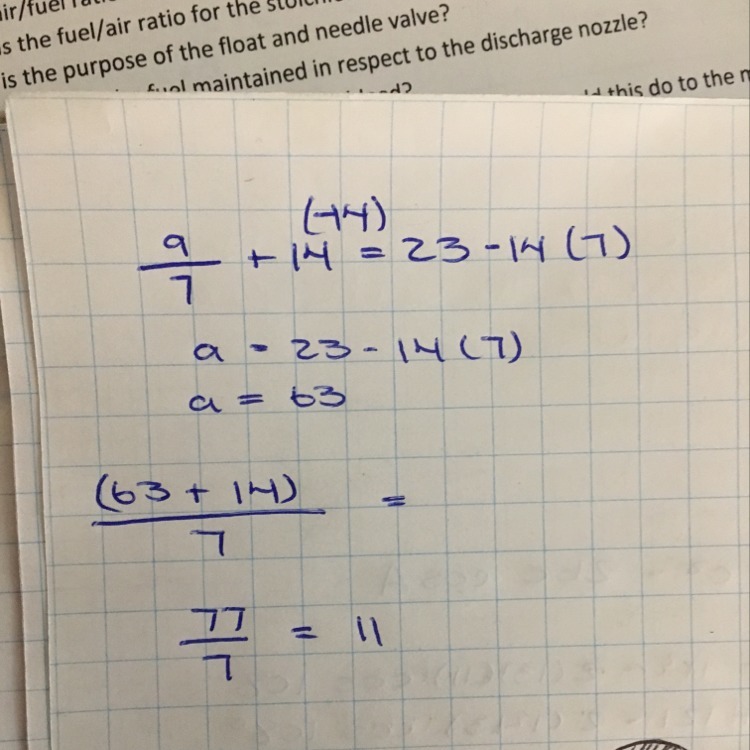 air/fuel
s the fuel/air ratio for the
is the purpose of the float and needle valve?
fuel maintained in respect to the discharge nozzle?
this do to the
(-14)
a/7 + 14 = 23 - 14 (7)
a = 23 - 14 (7)
a = 63
(63 + 14)/7 =
77/7 = 11